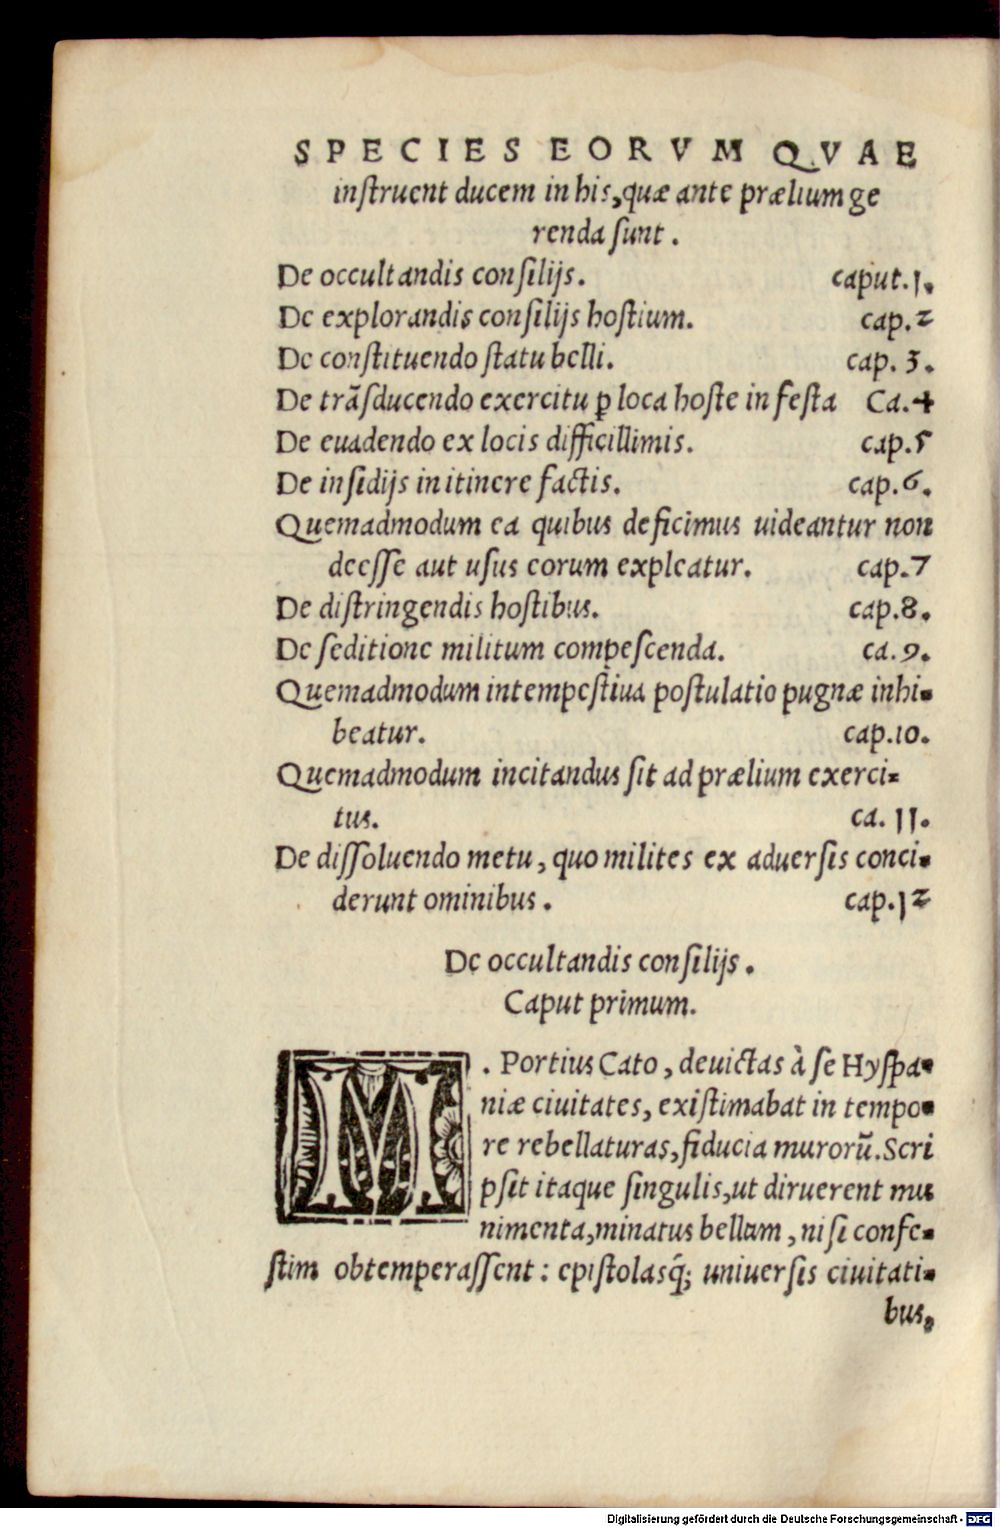 SPECIES EORVM QVAE
instruent ducem in his, quæ ante prælium ge
renda sunt.
De occultandis consilijs. caput.1.
De explorandis consilijs hostium. cap.2
De constituendo statu belli. cap. 3.
De trãsducendo exercitu ꝑ loca hoste infesta Ca.4
De euadendo ex locis difficillimis. cap.5
De insidijs in itinere factis. cap.6.
Quemadmodum ea quibus deficimus uideantur non
deesse aut usus eorum expleatur. cap.7
De distringendis hostibus. cap.8.
De seditione militum compescenda. ca.9.
Quemadmodum intempestiua postulatio pugnæ inhi-
beatur. cap.10.
Quemadmodum incitandus sit ad prælium exerci-
tus. ca. 11.
De dissoluendo metu, quo milites ex aduersis conci-
derunt ominibus. cap.12
De occultandis consilijs.
Caput primum.
M. Portius Cato, deuictas à se Hyspa-
niæ ciuitates, existimabat in tempo-
re rebellaturas, fiducia murorũ. Scri
psit itaque singulis, ut diruerent mu
nimenta, minatus bellum, nisi confe-
stim obtemperassent: epistolasq́; uniuersis ciuitati-
bus,
Digitalisierung gefördert durch die Deutsche Forschungsgemeinschaft - DFG